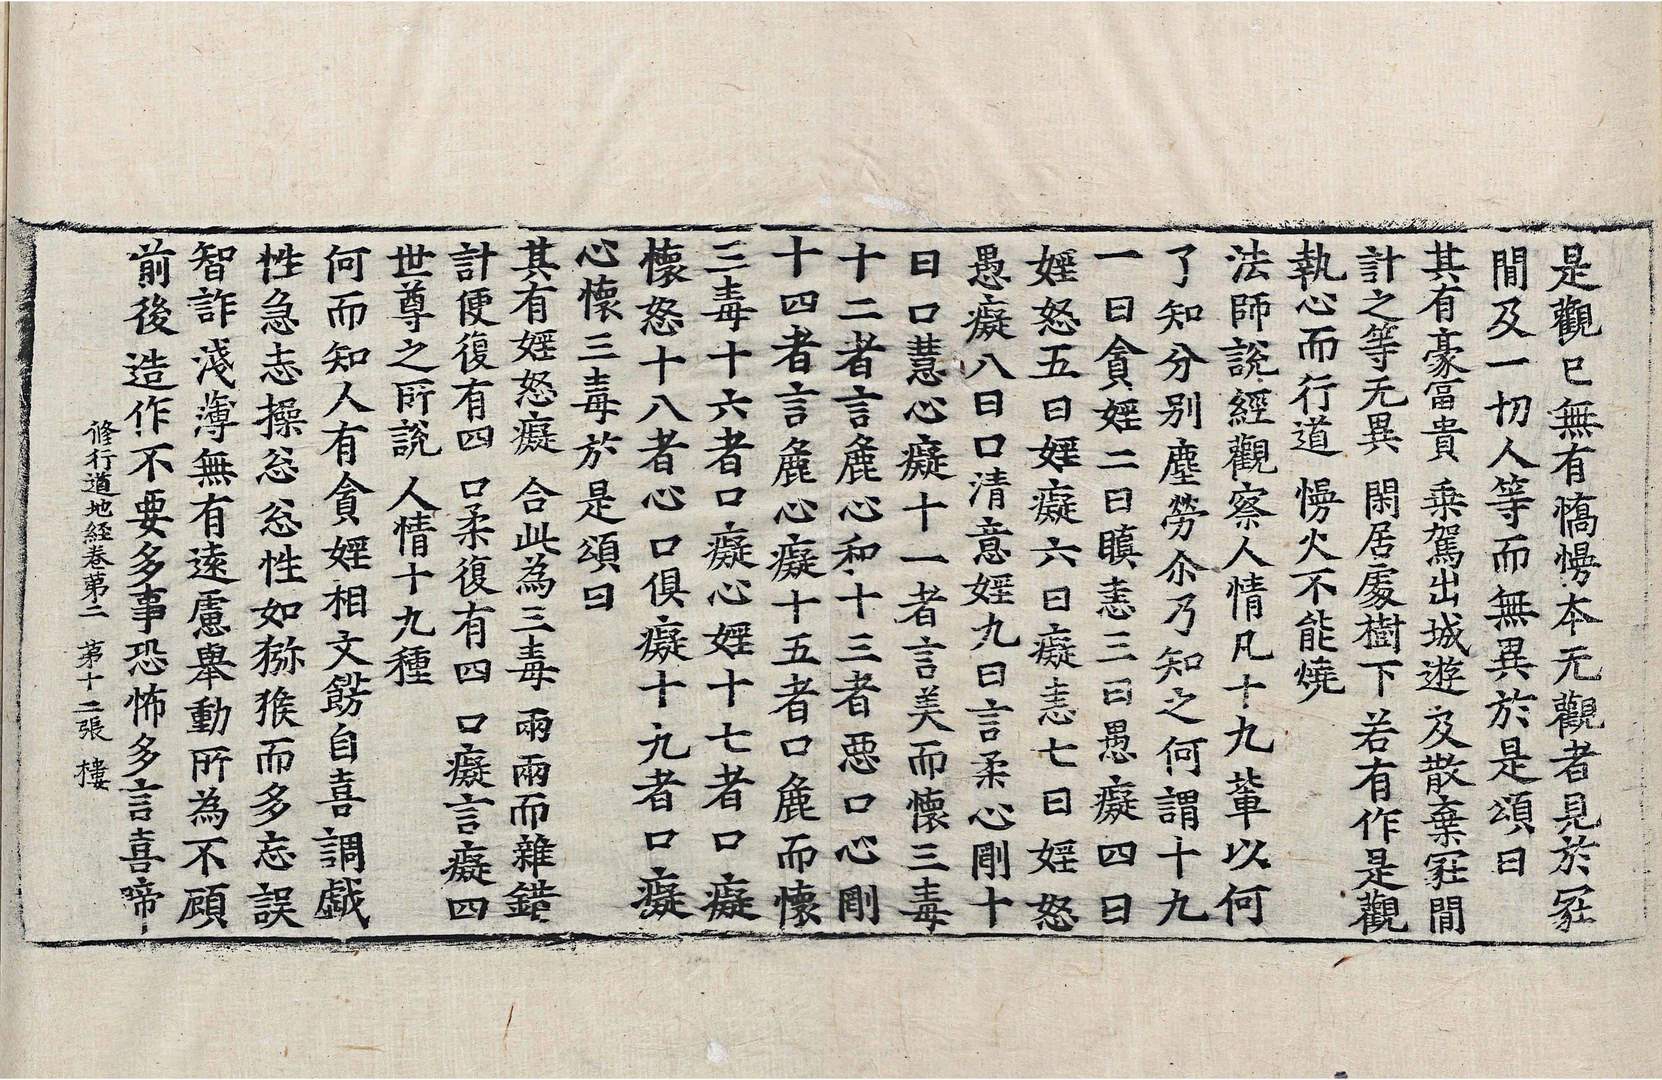 是觀已無有憍慢本无觀者見於冢
間及一切人等而無異於是頌曰
其有豪富貴 乘駕出城遊 及散棄冢間
計之等无異 閑居處樹下 若有作是觀
執心而行道 慢火不能燒
法師說經觀察人情凡十九輩以何
了知分別塵勞尒乃知之何謂十九
一曰貪婬二曰瞋恚三曰愚癡四曰
婬怒五曰婬癡六曰癡恚七曰婬怒
愚癡八曰口清意婬九曰言柔心剛十
曰口慧心癡十一者言美而懷三毒
十二者言麁心和十三者惡口心剛
十四者言麁心癡十五者口麁而懷
三毒十六者口癡心婬十七者口癡
懷怒十八者心口俱癡十九者口癡
心懷三毒於是頌曰
其有婬怒癡 合此為三毒 兩兩而雜錯
計便復有四 口柔復有四 口癡言癡四
世尊之所說 人情十九種
何而知人有貪婬相文餝自喜調戲
性急志操忩忩性如猕猴而多忘誤
智詐淺薄無有遠慮舉動所為不顧
前後造作不要多事恐怖多言喜啼
修行道地經卷第二 第十二張 樓